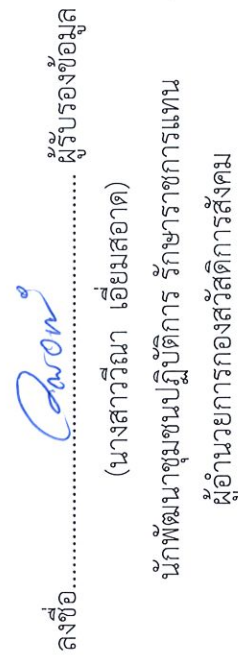 ลงชื่อ........................................ ผู้รับรองข้อมูล
(นางสาววีณา เอี่ยมสอาด)
นักพัฒนาชุมชนปฏิบัติการ รักษาราชการแทน
ผู้อำนวยการกองสวัสดิการสังคม